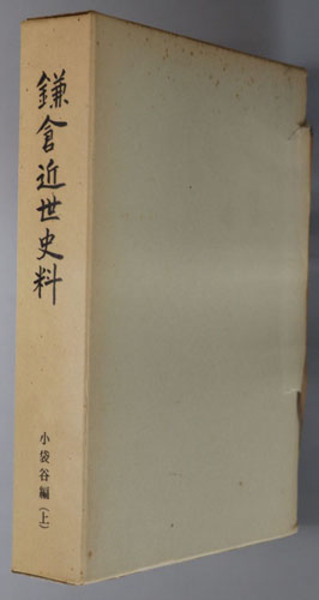 鎌倉近世史料
小袋谷編(上)